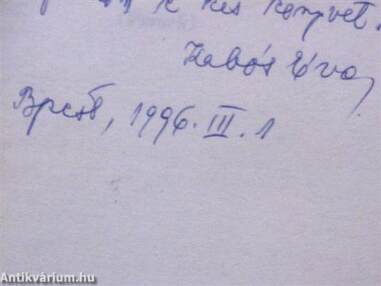 k kis könyvet.
Kabós Éva
Bpest, 1996. III. 1
Antikvárium.hu